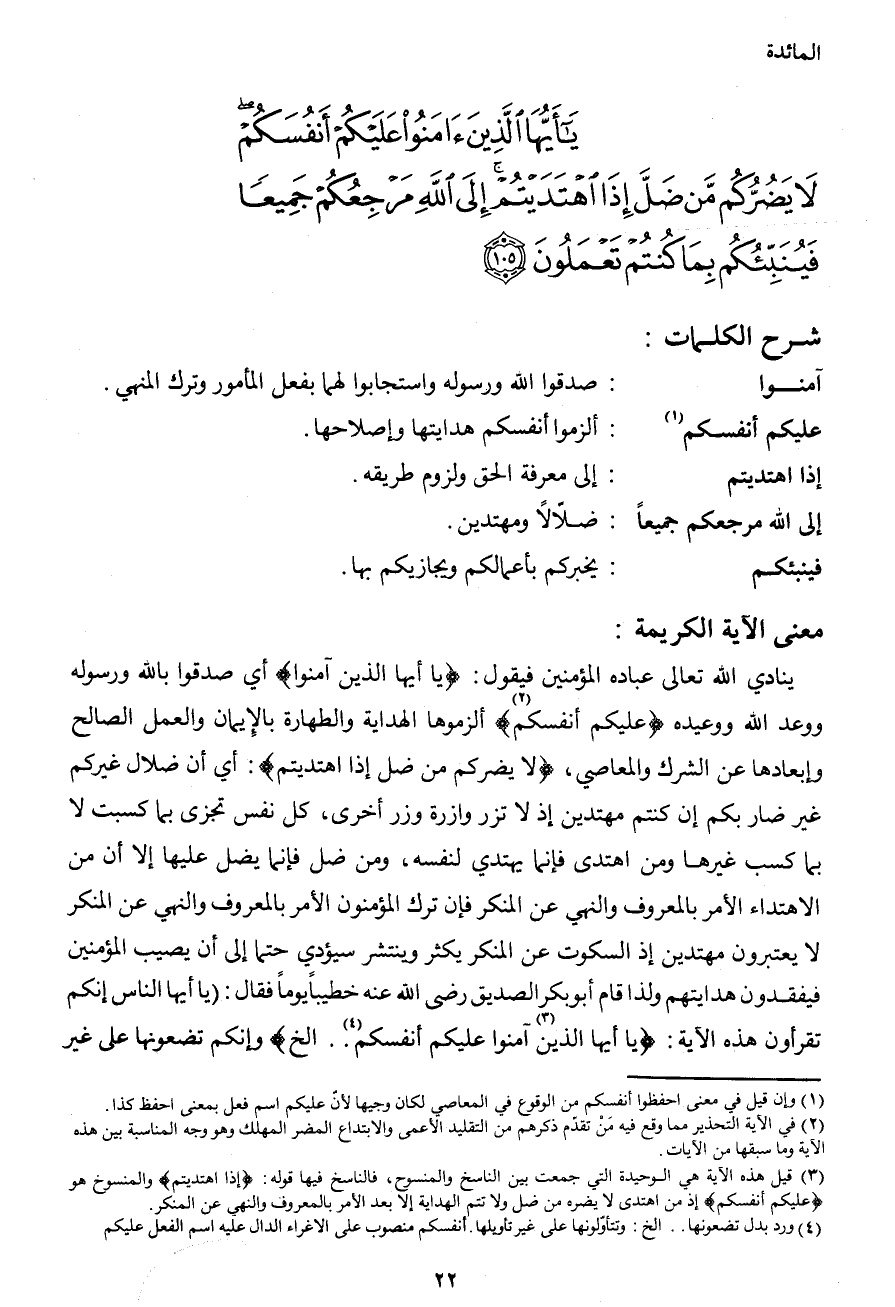 المائدة
يَٰٓأَيُّهَا ٱلَّذِينَ ءَامَنُوا۟ عَلَيْكُمْ أَنفُسَكُمْ ۖ
لَا يَضُرُّكُم مَّن ضَلَّ إِذَا ٱهْتَدَيْتُمْ ۚ إِلَى ٱللَّهِ مَرْجِعُكُمْ جَمِيعًا
فَيُنَبِّئُكُم بِمَا كُنتُمْ تَعْمَلُونَ ١٠٥
شـرح الكلـمات :
آمنـــوا : صدقوا الله ورسوله واستجابوا لهما بفعل المأمور وترك المنهي .
عليكم أنفسـكم(١) : ألزموا أنفسكم هدايتها وإصلاحها .
إذا اهتديتم : إلى معرفة الحق ولزوم طريقه .
إلى الله مرجعكم جميعاً : ضـلّالًا ومهتدين .
فينبئكـم : يخبركم بأعمالكم ويجازيكم بها .
معنى الآية الكريمة :
ينادي الله تعالى عباده المؤمنين فيقول : ﴿يا أيها الذين آمنوا﴾ أي صدقوا بالله ورسوله
ووعد الله ووعيده ﴿عليكم أنفسكم(٢)﴾ ألزموها الهداية والطهارة بالإيمان والعمل الصالح
وإبعادها عن الشرك والمعاصي ، ﴿لا يضركم من ضل إذا اهتديتم﴾ : أي أن ضلال غيركم
غير ضار بكم إن كنتم مهتدين إذ لا تزر وازرة وزر أخرى، كل نفس تجزى بما كسبت لا
بما كسب غيرهـا ومن اهتدى فإنما يهتدي لنفسه ، ومن ضل فإنما يضل عليها إلا أن من
الاهتداء الأمر بالمعروف والنهي عن المنكر فإن ترك المؤمنون الأمر بالمعروف والنهي عن المنكر
لا يعتبرون مهتدين إذ السكوت عن المنكر يكثر وينتشر سيؤدي حتما إلى أن يصيب المؤمنين
فيفقـدون هدايتهم ولذا قام أبوبكر الصديق رضى الله عنه خطيباً يوماً فقال : (يا أيها الناس إنكم
تقرأون هذه الآية : ﴿يا أيها الذين(٣) آمنوا عليكم أنفسكم(٤) . . الخ﴾ وإنكم تضعونها على غير
(١) وإن قيل في معنى احفظوا أنفسكم من الوقوع في المعاصي لكان وجيها لأنّ عليكم اسم فعل بمعنى احفظ كذا .
(٢) في الآية التحذير مما وقع فيه مَنْ تقدّم ذكرهم من التقليد الأعمى والابتداع المضر المهلك وهو وجه المناسبة بين هذه
الآية وما سبقها من الآيات .
(٣) قيل هذه الآية هي الـوحيدة التي جمعت بين الناسخ والمنسوح، فالناسخ فيها قوله : ﴿إذا اهتديتم﴾ والمنسوخ هو
﴿عليكم أنفسكم﴾ إذ من اهتدى لا يضره من ضل ولا تتم الهداية إلا بعد الأمر بالمعروف والنهي عن المنكر.
(٤) ورد بدل تضعونها . . الخ : وتتأوّلونها على غير تأويلها. أنفسكم منصوب على الاغراء الدال عليه اسم الفعل عليكم
٢٢